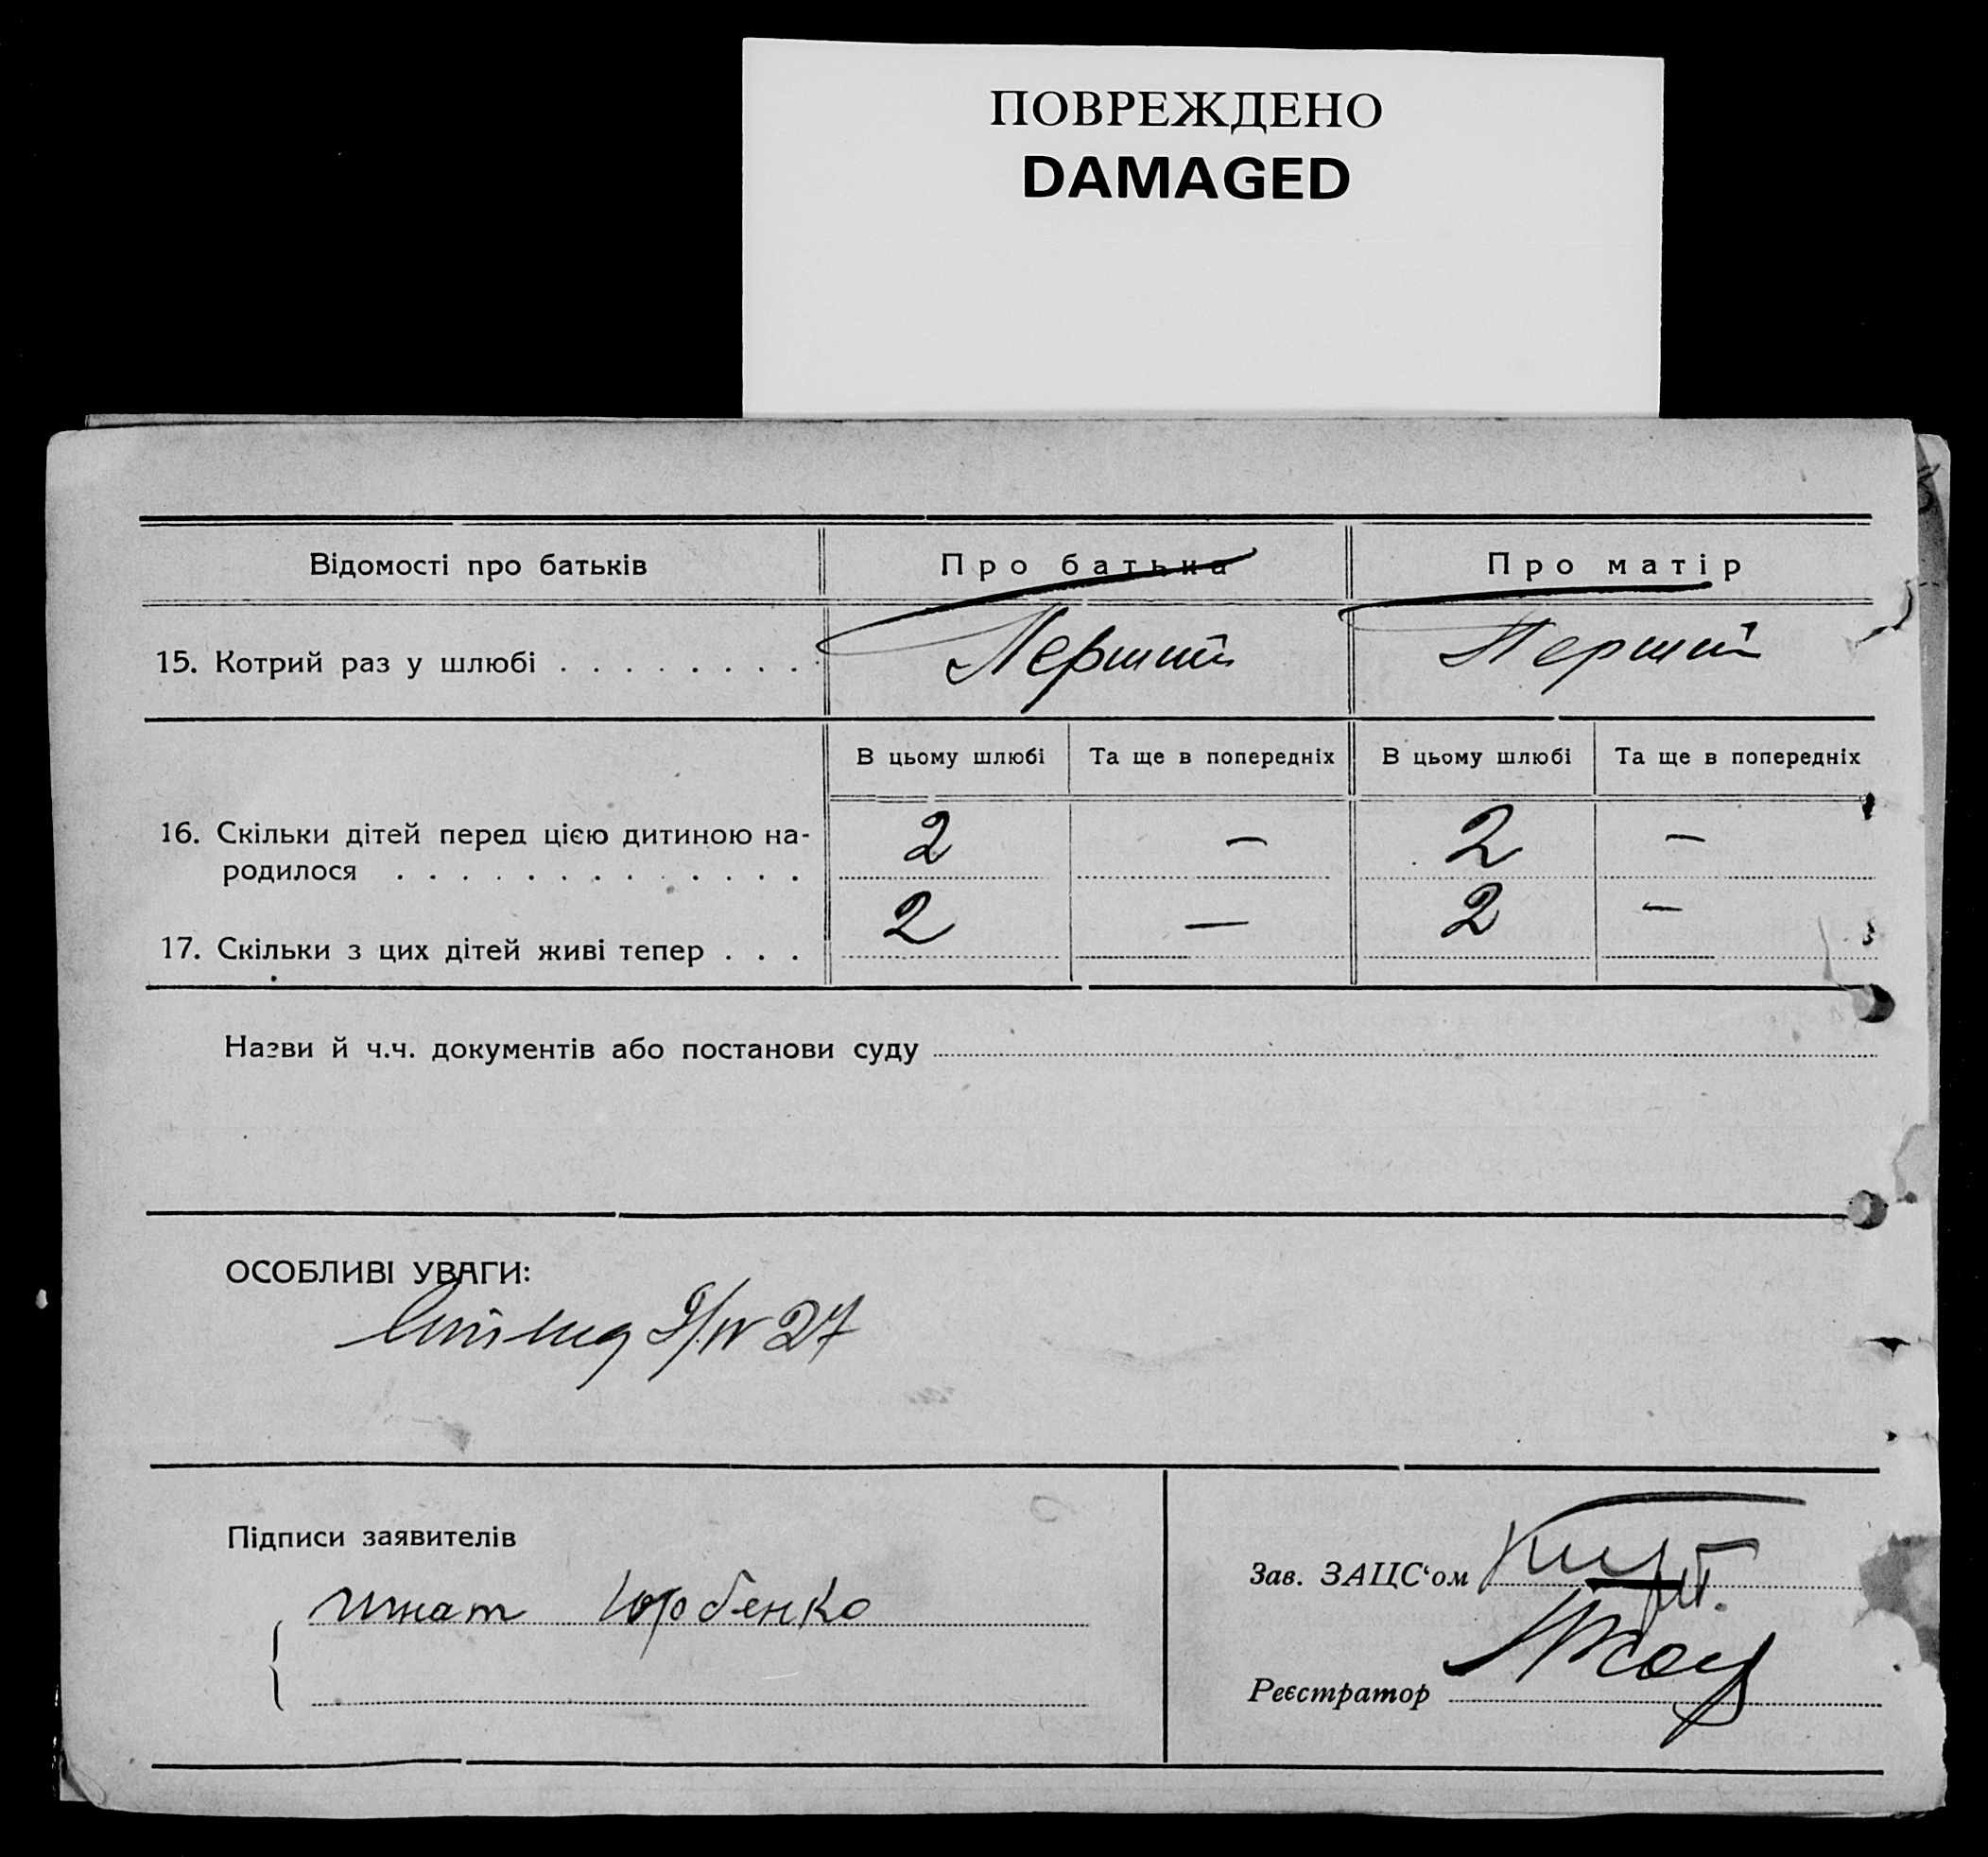 ПОВРЕЖДЕНО
DAMAGED
Відомості про батьків
Про батька
Про матір
15. Котрий раз у шлюбі . . . . . . . .
Перший
Перший
В цьому шлюбі
Та ще в попередніх
В цьому шлюбі
Та ще в попередніх
16. Скільки дітей перед цією дитиною на-
родилося . . . . . . . . . . . . .
2
–
2
–
17. Скільки з цих дітей живі тепер . . .
2
–
2
–
Назви й ч.ч. документів або постанови суду
ОСОБЛИВІ УВАГИ:
9/IV 27
Підписи заявителів
Зав. ЗАЦС‘ом
Реєстратор